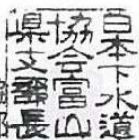 日本下水道
協会富山
県支部長